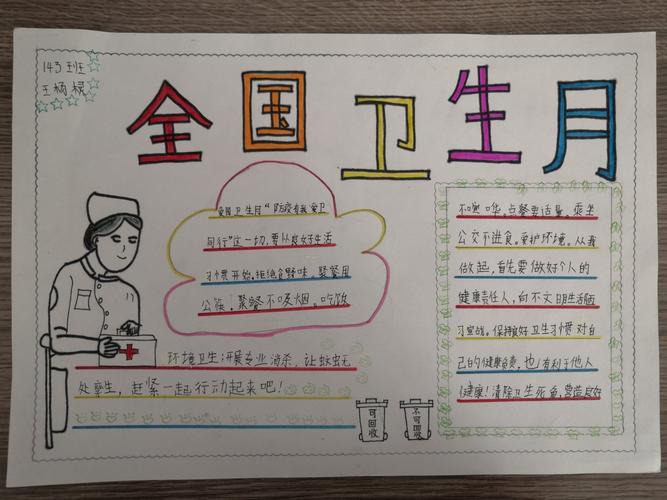 143班
王杨禄
全国卫生月
爱国卫生月"防疫有我爱卫
同行"这一切，要从良好生活
习惯开始。拒绝食野味。聚餐用
公筷。聚餐不吸烟。吃饭
环境卫生：开展专业消杀，让蚊虫无
处孳生，赶紧一起行动起来吧！
不喧哗。点餐要适量。乘坐
公交不进食。爱护环境。从我
做起，首先要做好个人的
健康责任人，向不文明生活陋
习宣战。保持良好卫生习惯对自
己的健康负责，也有利于他人
健康！清除卫生死角，营造良好
可回收
不可回收